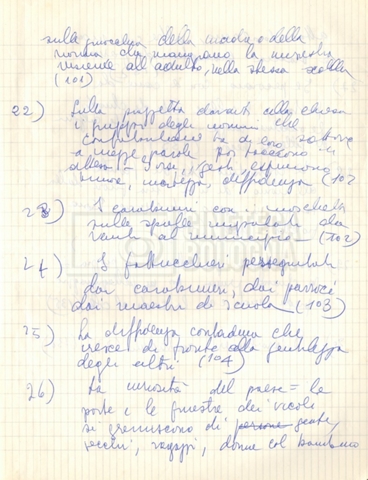 sulla groscelza della madre o della
nonna che mangiano la minestra
insieme all'adulto, nella stessa scodella
(101)
22) Sulla piazzetta davanti alla chiesa
i gruppi degli uomini che
confabulano tra di loro sottovoce
a mezze parole
timore, incertezza, diffidenza (102
23) I carabinieri con i moschetti
sulle spalle impalati da
vanti al municipio - (102)
24) I fattucchieri perseguitati
dai carabinieri, dai parroci
dai maestri di scuola (103)
25) La diffidenza contadina che
cresce di fronte alla gentilezza
degli altri (104)
26) La curiosità del paese = le
porte e le finestre dei vicoli
si gremiscono di persone gente,
vecchi, ragazzi, donne col bambino